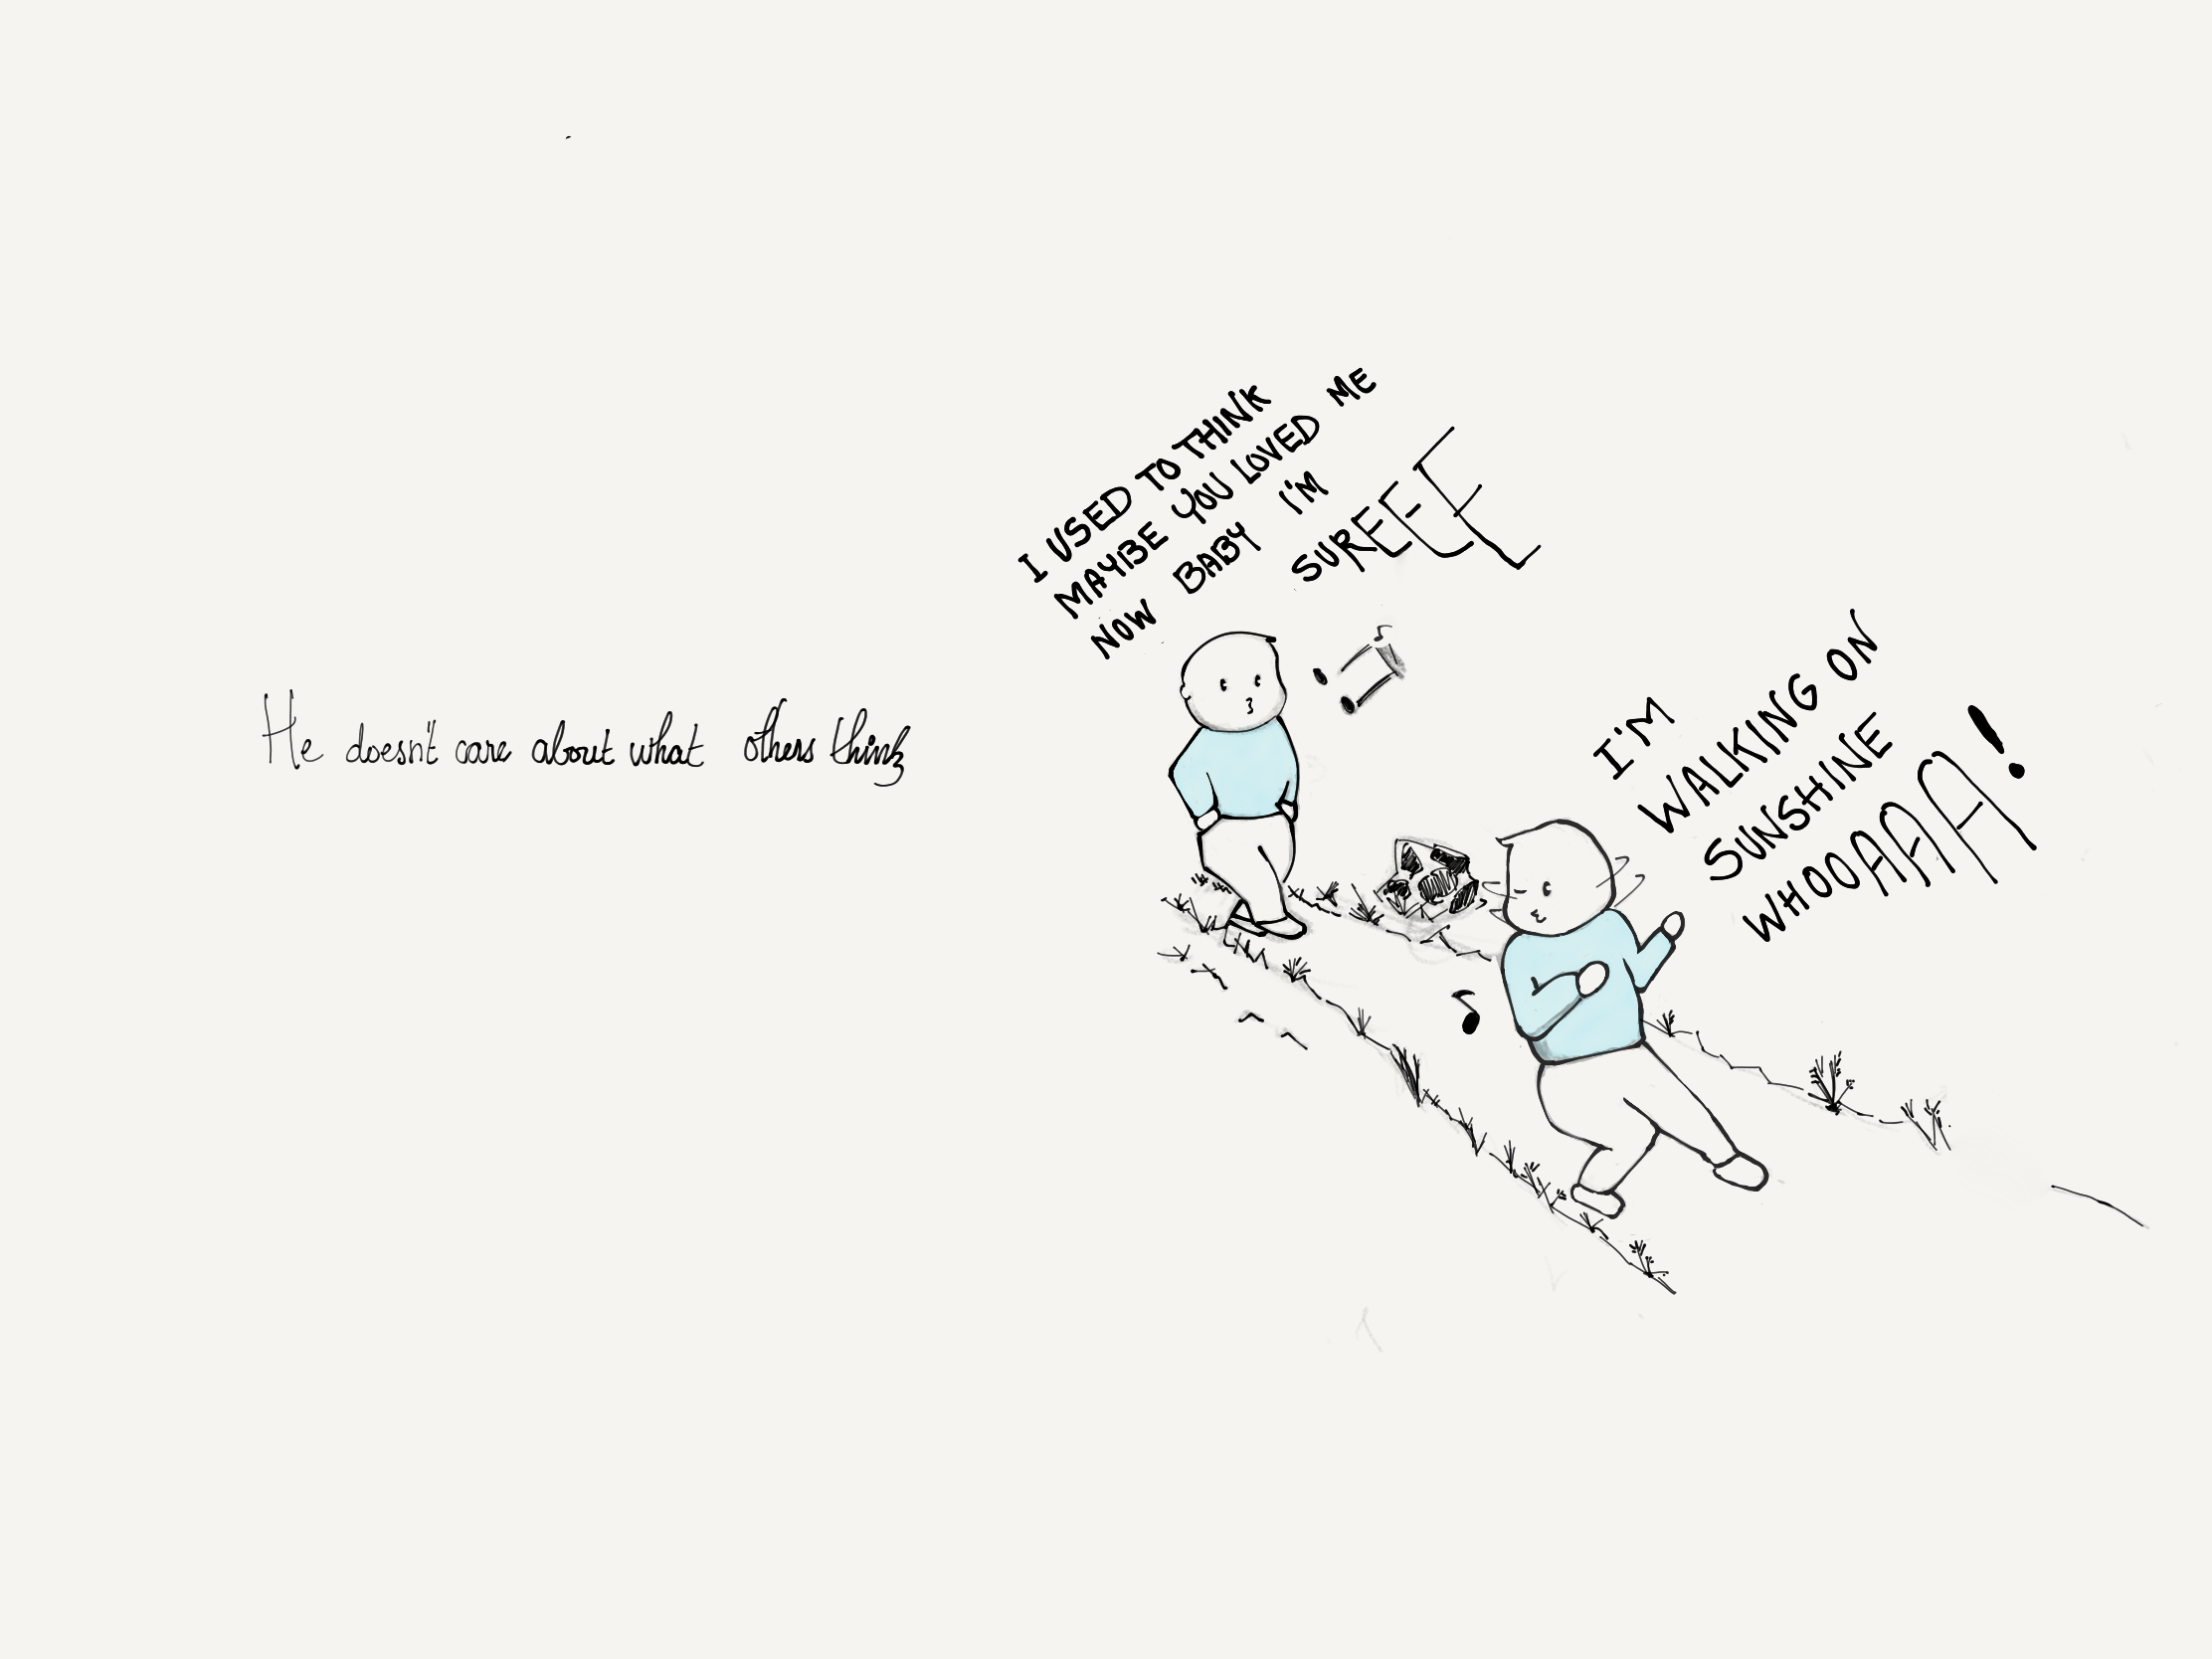 He doesn't care about what others think
I USED TO THINK
MAYBE YOU LOVED ME
NOW BABY I'M
SUREEE
I'M
WALKING ON
SUNSHINE
WHOOAAA!